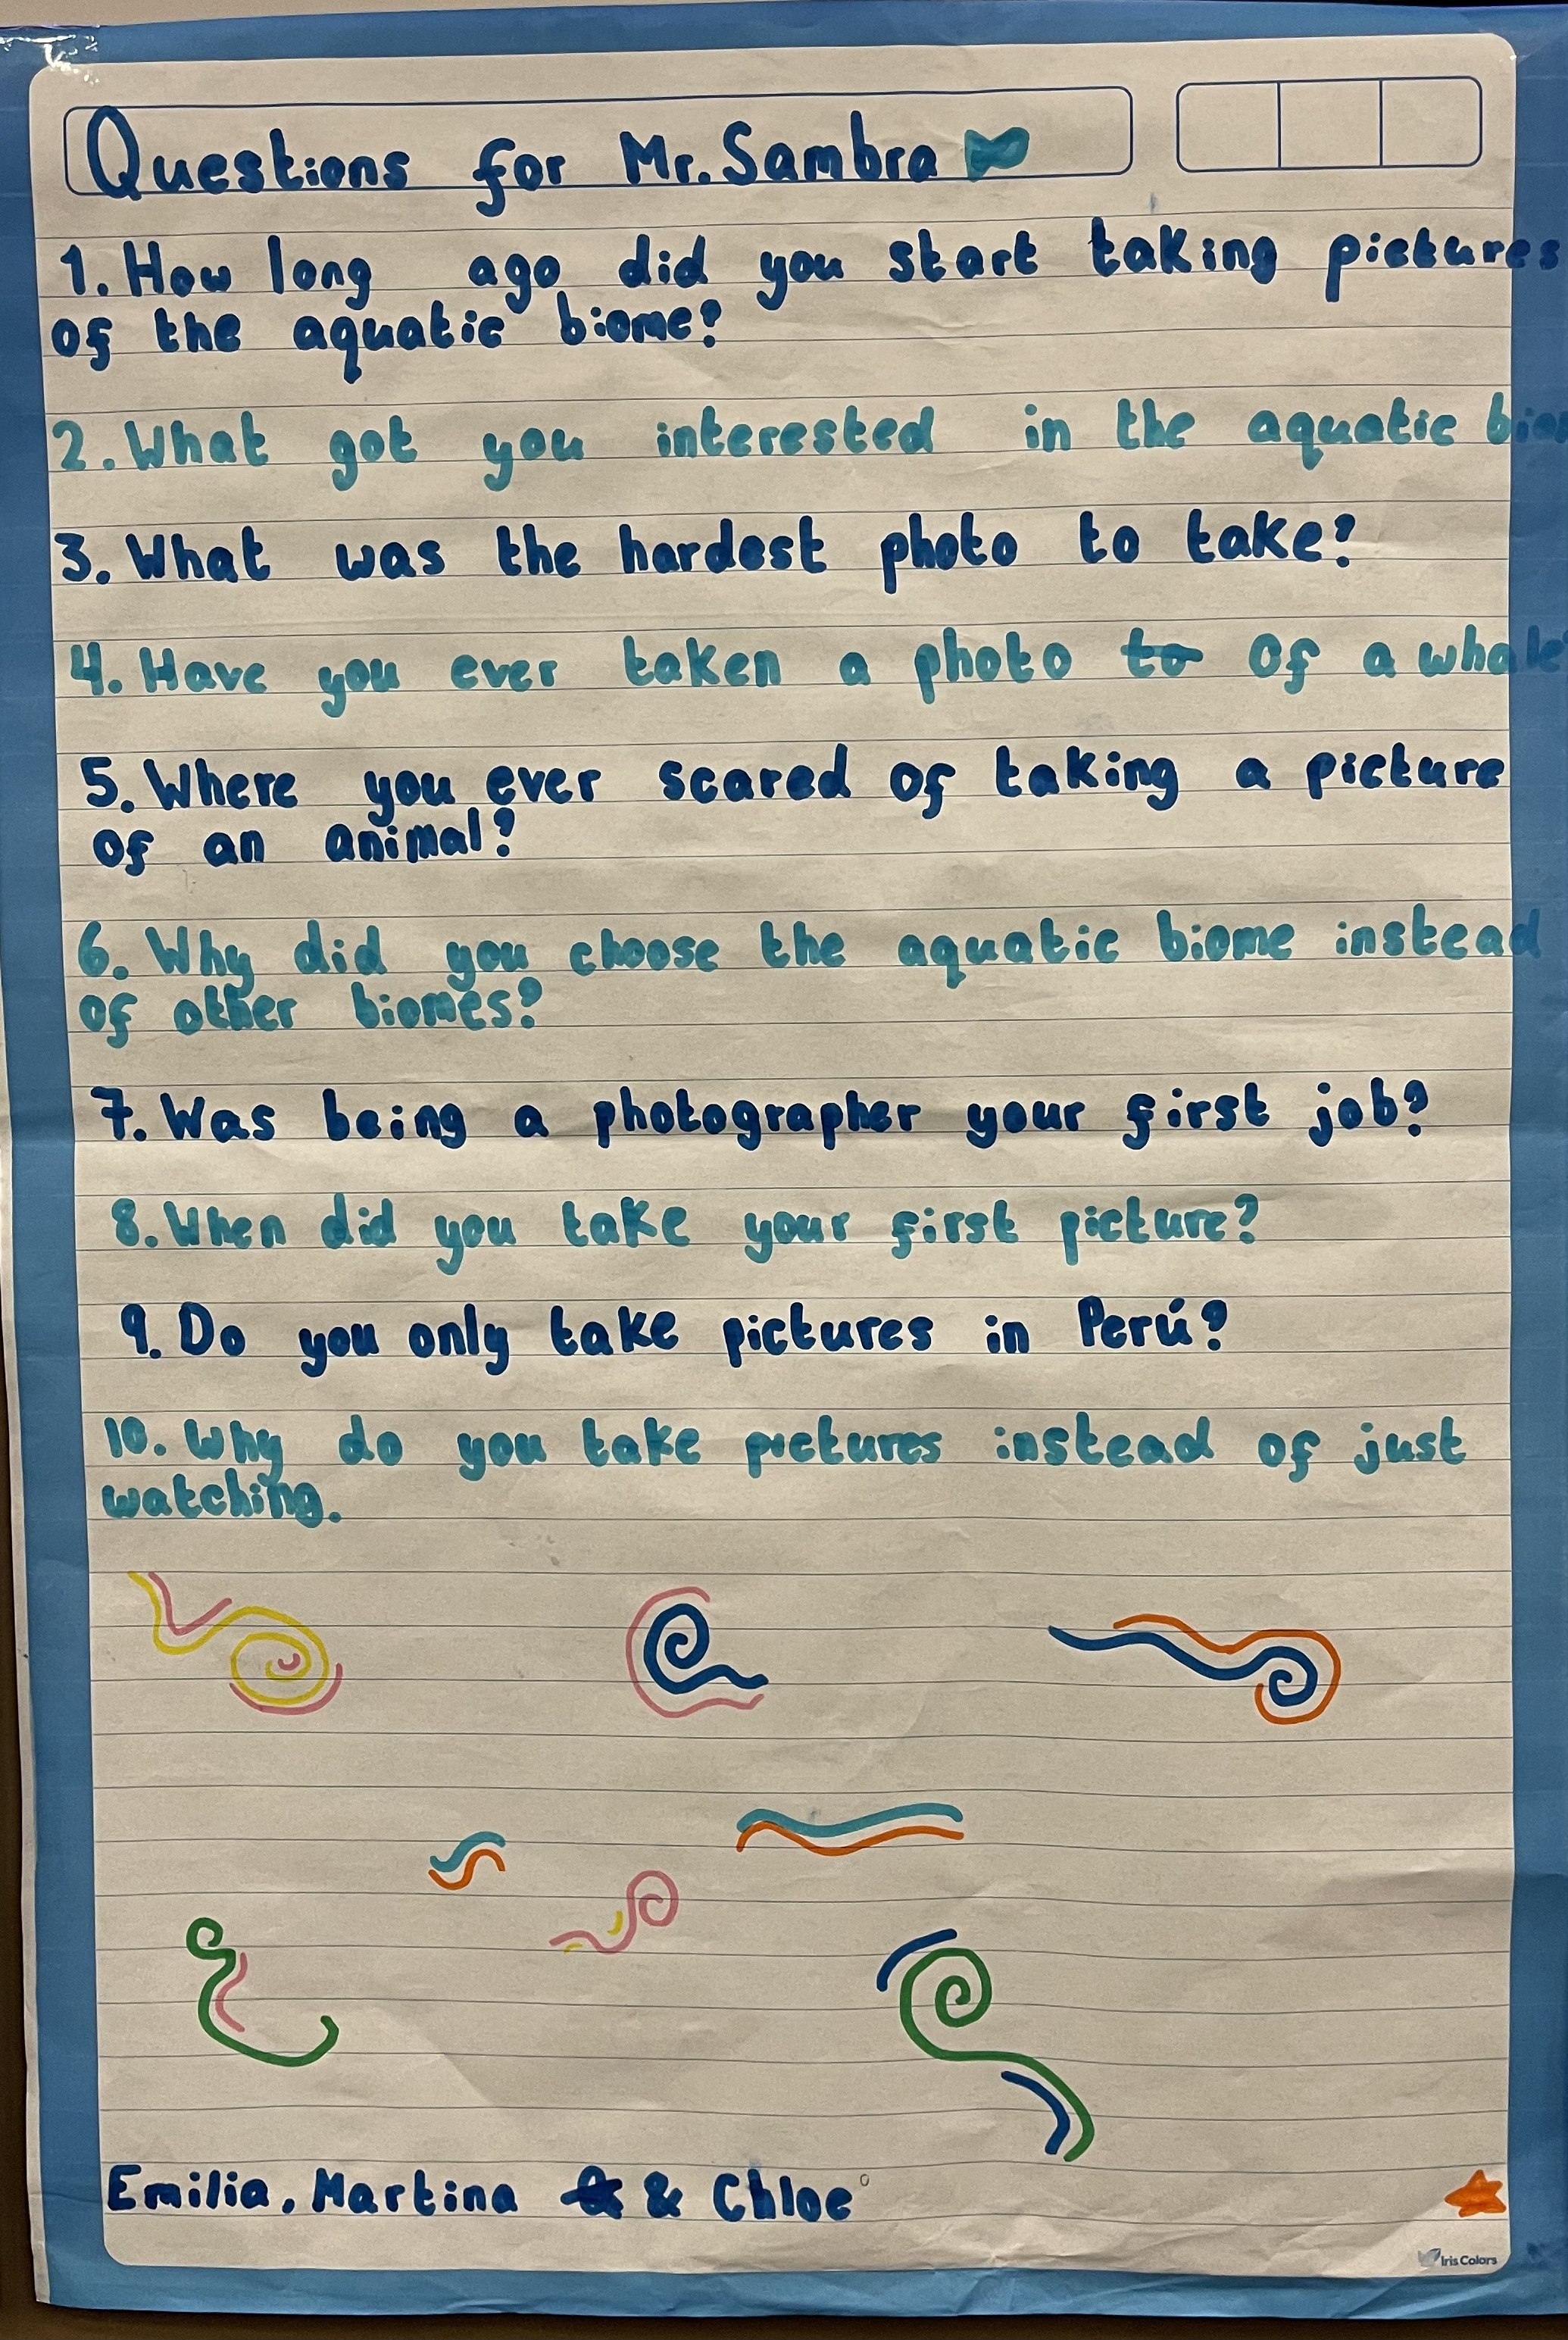 Questions for Mr. Sambra
1. How long ago did you start taking pictures
of the aquatic biome?
2. What got you interested in the aquatic
3. What was the hardest photo to take?
4. Have you ever taken a photo to of a whale
5. Where you ever scared of taking a picture
of an animal?
6. Why did you choose the aquatic biome instead
of other biomes?
7. Was being a photographer your first job?
8. When did you take your first picture?
9. Do you only take pictures in Perú?
10. Why do you take pictures instead of just
watching.
Emilia, Martina & Chloe
Iris Colors